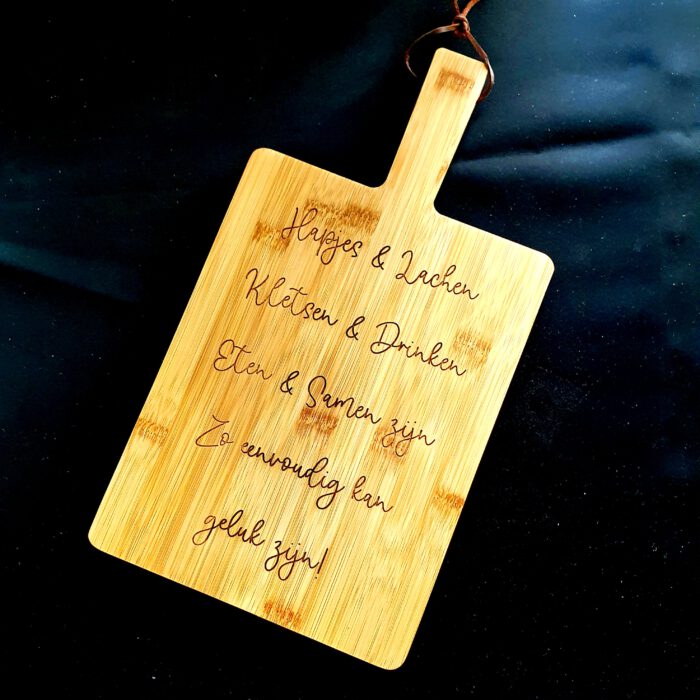 Hapjes & Lachen
Kletsen & Drinken
Eten & Samen zijn
Zo eenvoudig kan
geluk zijn!